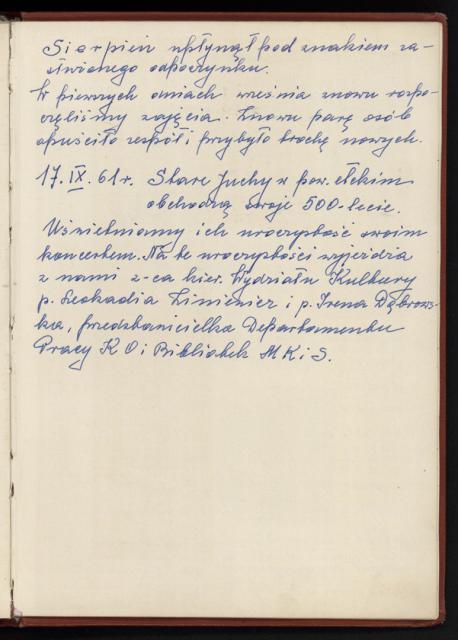 Sierpień upłynął pod znakiem za-
służonego odpoczynku.
W pierwszych dniach września znowu rozpo-
częliśmy zajęcia. Znowu parę osób
opuściło zespół i przybyło trochę nowych.
17. IX. 61 r. Stare Juchy w pow. ełckim
obchodzą swoje 500-lecie.
Uświetniamy ich uroczystość swoim
koncertem. Na te uroczystości wyjeżdża
z nami z-ca kier. Wydziału Kultury
p. Leokadia i p. Irena Dąbrows-
ka, przedstawicielka Departamentu
Pracy K O i Bibliotek M K i S.